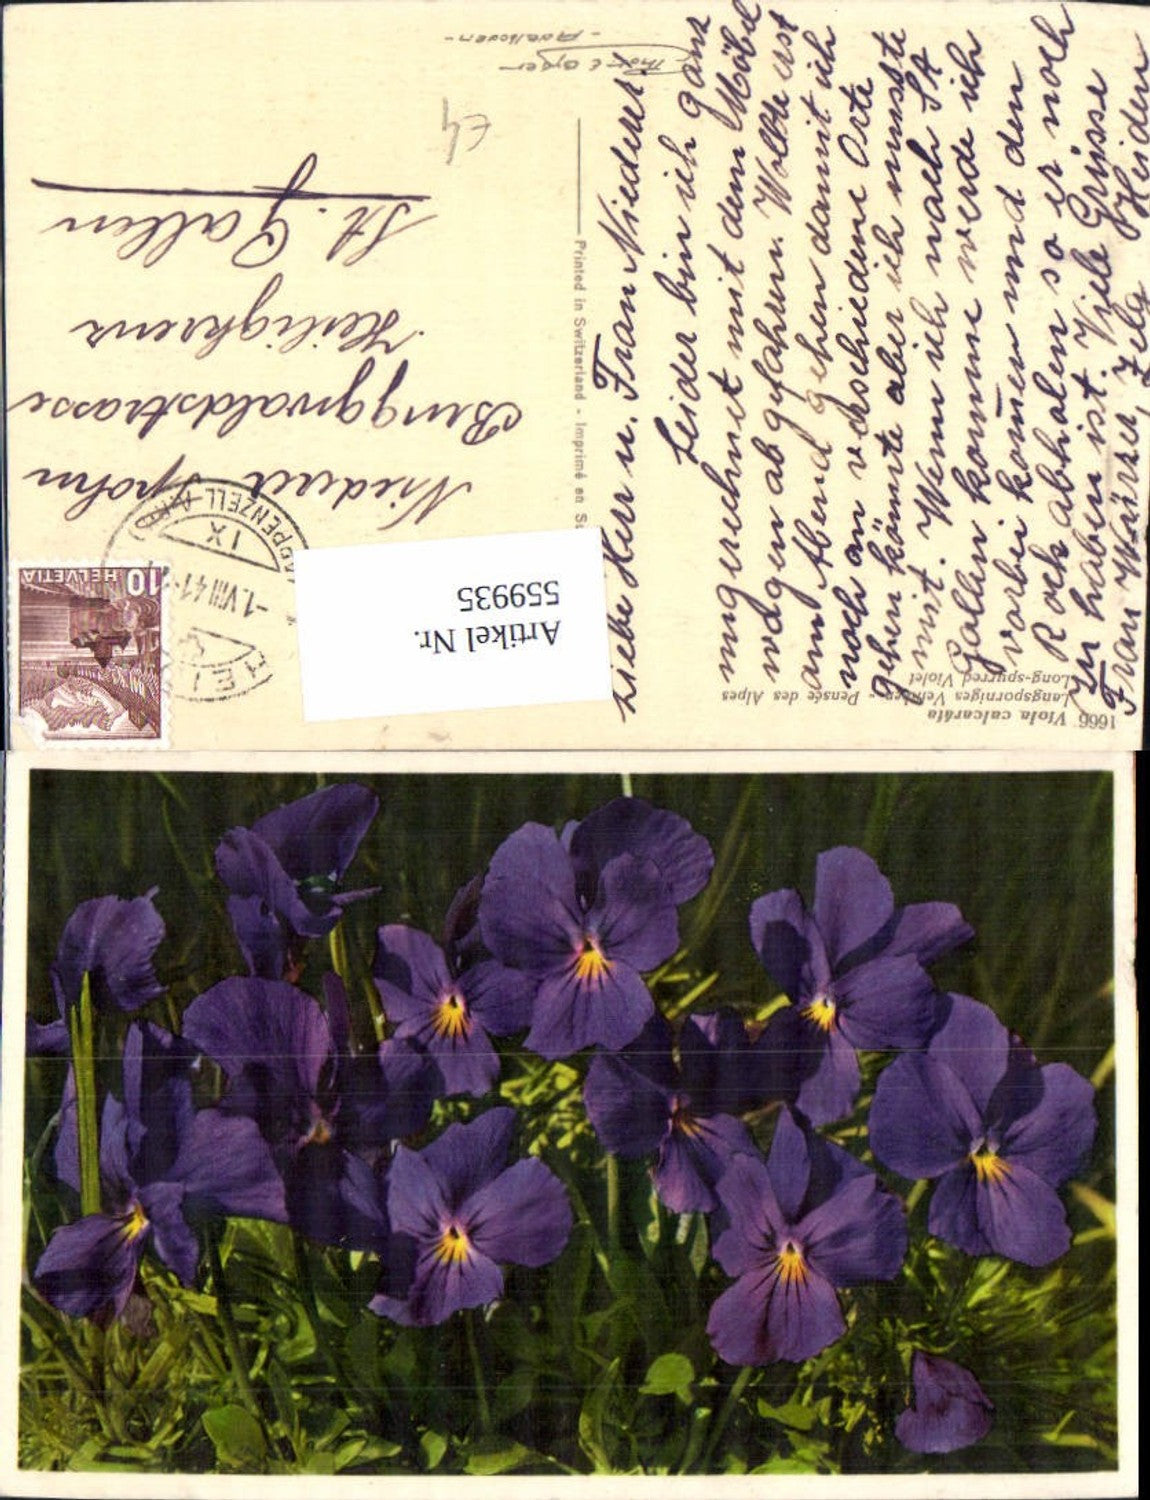 Thor E Gyger
- Adelboden -
Liebe Herr u. Frau Niederer
Leider bin ich ganz
ungerechnet mit dem Möbel
wagen abgefahren. Wollte erst
am Abend gehen damit ich
noch an verschiedene Orte
gehen könnte aber ich musste
mit. Wenn ich nach St
Gallen komme werde ich
vorbei kommen und den
Rock abholen so er noch
zu haben ist. Viele Grüsse
Frau Würzer, Zelg Heiden
Niederer Spohn
Bruggwaldstrasse
Heiligkreuz
St. Gallen
HELVETIA 10
HEIDEN
-1.VIII.41-
IX
(APPENZELL A.RH.)
Printed in Switzerland - Imprimé en Su
Artikel Nr.
559935
1666 Viola calcaráta
Langsporniges Veilchen - Pensée des Alpes
Long-spurred Violet